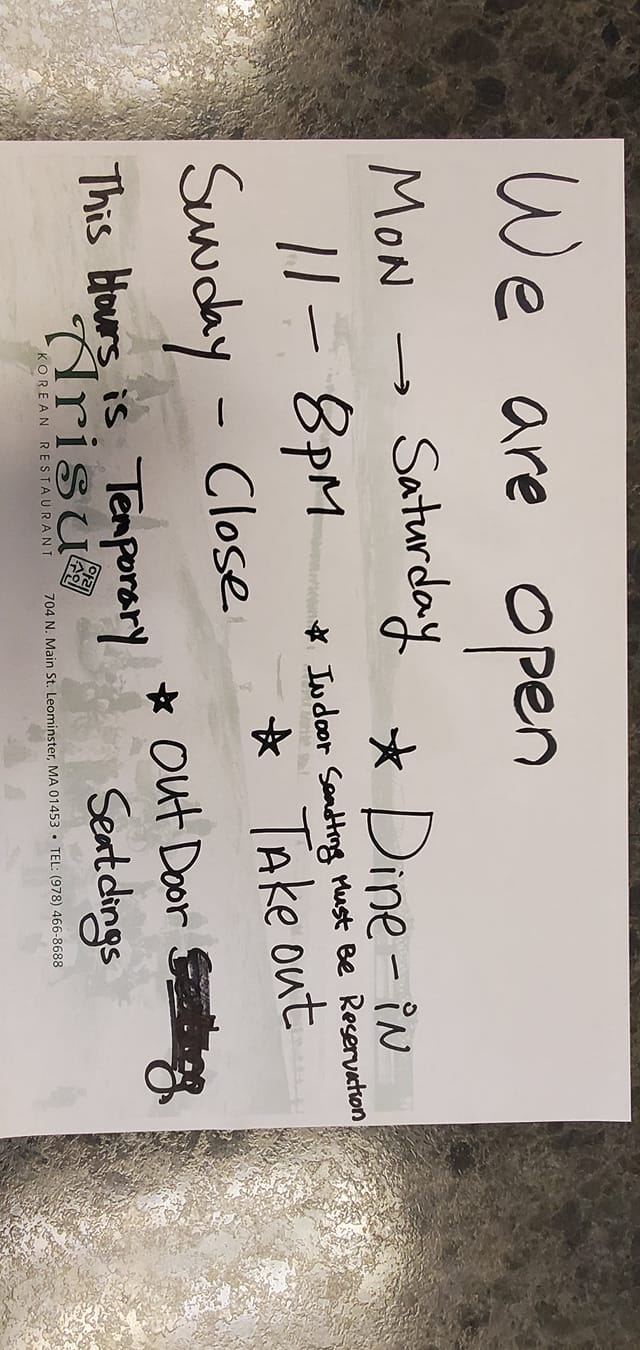 We are open
Mon → Saturday ☆ Dine-in
* Indoor Seatting Must Be Reservation
11 - 8pm ☆ Take out
Sunday - Close
☆ Out Door
This Hours is Temporary Seatdings
Arisu 아리수인
KOREAN RESTAURANT 704 N. Main St. Leominster, MA 01453 • TEL: (978) 466-8688